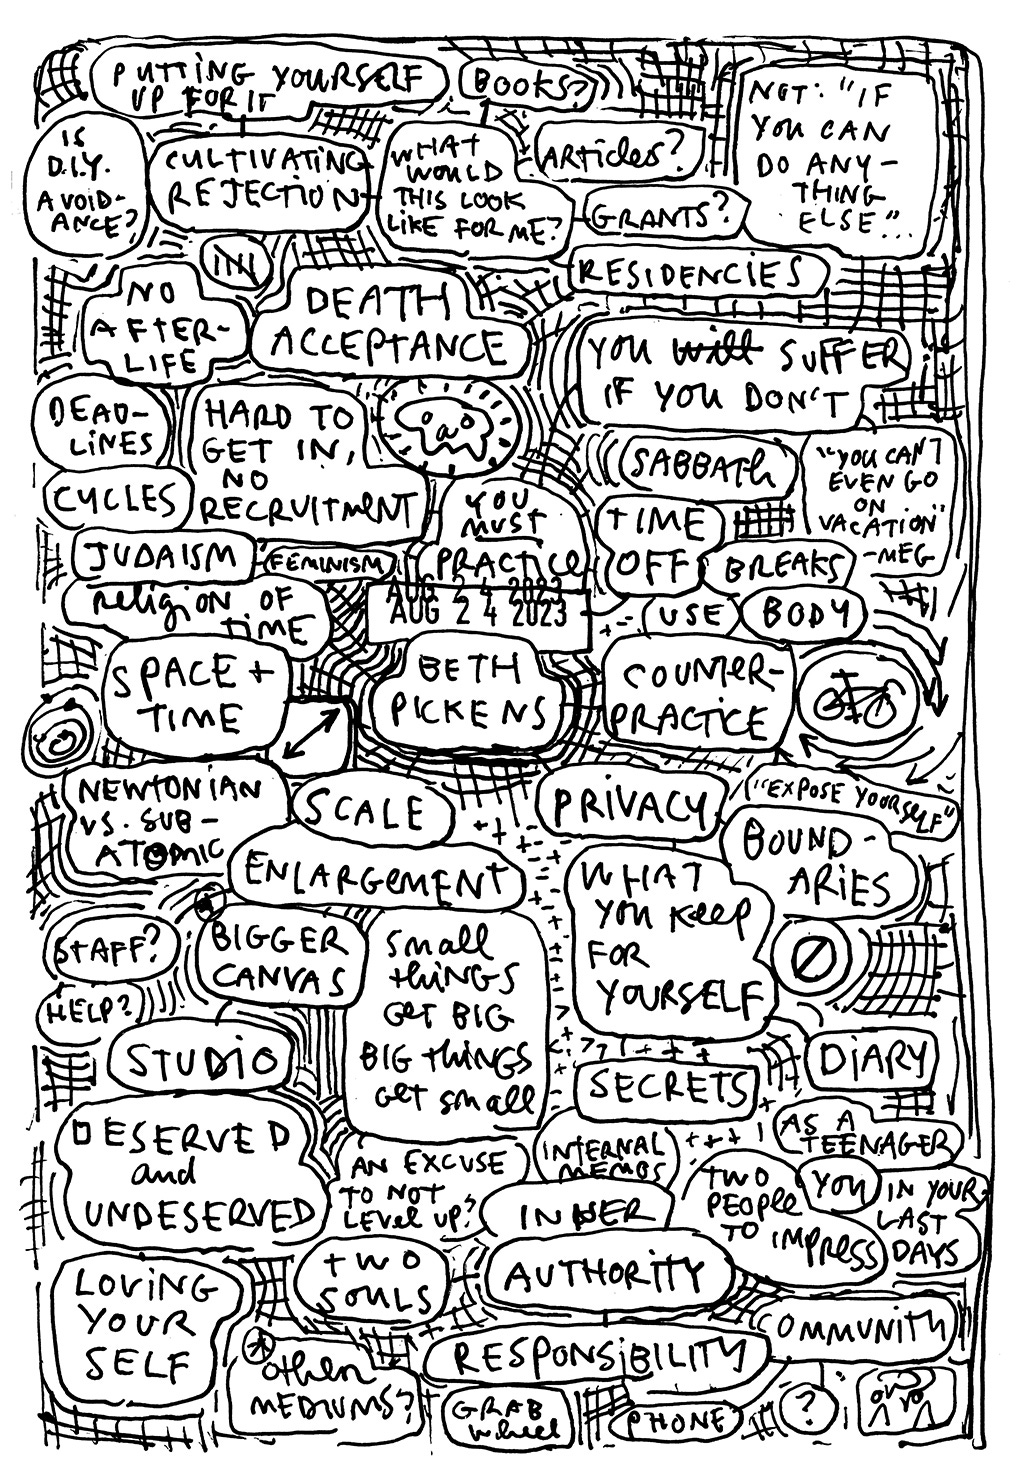 PUTTING YOURSELF
UP FOR IT
BOOKS?
NOT: "IF
YOU CAN
DO ANY-
THING
ELSE"...
IS
D.I.Y.
AVOID-
ANCE?
CULTIVATING
REJECTION
WHAT
WOULD
THIS LOOK
LIKE FOR ME?
ARTICLES?
GRANTS?
RESIDENCIES
NO
AFTER-
LIFE
DEATH
ACCEPTANCE
YOU will SUFFER
IF YOU DON'T
DEAD-
LINES
HARD TO
GET IN,
NO
RECRUITMENT
SABBATH
"YOU CAN'T
EVEN GO
ON
VACATION"
-MEG
CYCLES
YOU
MUST
PRACTICE
TIME
OFF
BREAKS
JUDAISM
FEMINISM
AUG 24 2023
AUG 24 2023
RELIGION OF
TIME
USE
BODY
SPACE +
TIME
BETH
PICKENS
COUNTER-
PRACTICE
NEWTONIAN
VS. SUB-
ATOMIC
SCALE
PRIVACY
("EXPOSE YOURSELF"
BOUND-
ARIES
ENLARGEMENT
WHAT
YOU KEEP
FOR
YOURSELF
STAFF?
BIGGER
CANVAS
SMALL
THINGS
GET BIG
BIG THINGS
GET SMALL
HELP?
STUDIO
DIARY
SECRETS
DESERVED
and
UNDESERVED
AN EXCUSE
TO NOT
LEVEL UP?
INTERNAL
MEMOS
AS A
TEENAGER
TWO
PEOPLE
TO IMPRESS
YOU
IN YOUR
LAST
DAYS
INNER
AUTHORITY
TWO
SOULS
LOVING
YOUR
SELF
COMMUNITY
RESPONSIBILITY
other
MEDIUMS?
GRAB
wheel
PHONE
?